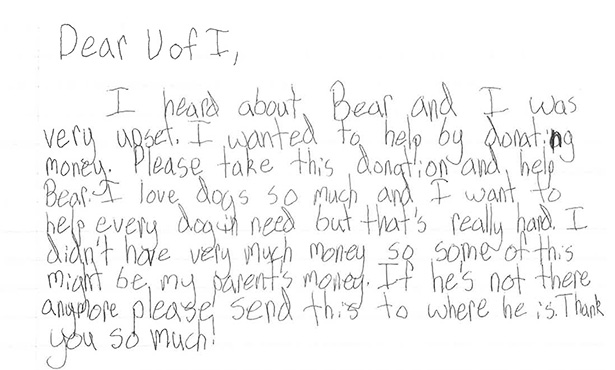 Dear U of I,
I heard about Bear and I was
very upset. I wanted to help by donating
money. Please take this donation and help
Bear. I love dogs so much and I want to
help every dog in need but that's really hard. I
didn't have very much money so some of this
might be my parent's money. If he's not there
anymore please send this to where he is. Thank
you so much!